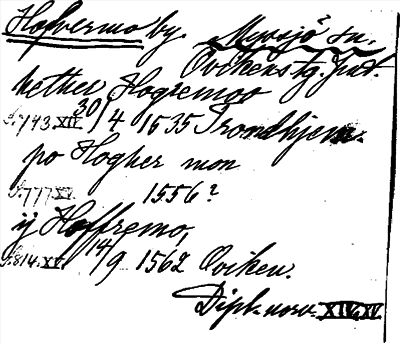 Hofvermo by. Myssjö sn.
Ovikens tg. Jmt.
hether Hogremoo
S. 743. XIV 30/4 1535 Trondhjem.
po Hogher mon
S. 777 XV. 1556?
ij Hoffremo,
S. 814. XV. 14/9 1562 Oviken.
Dipl. norv. XIV, XV